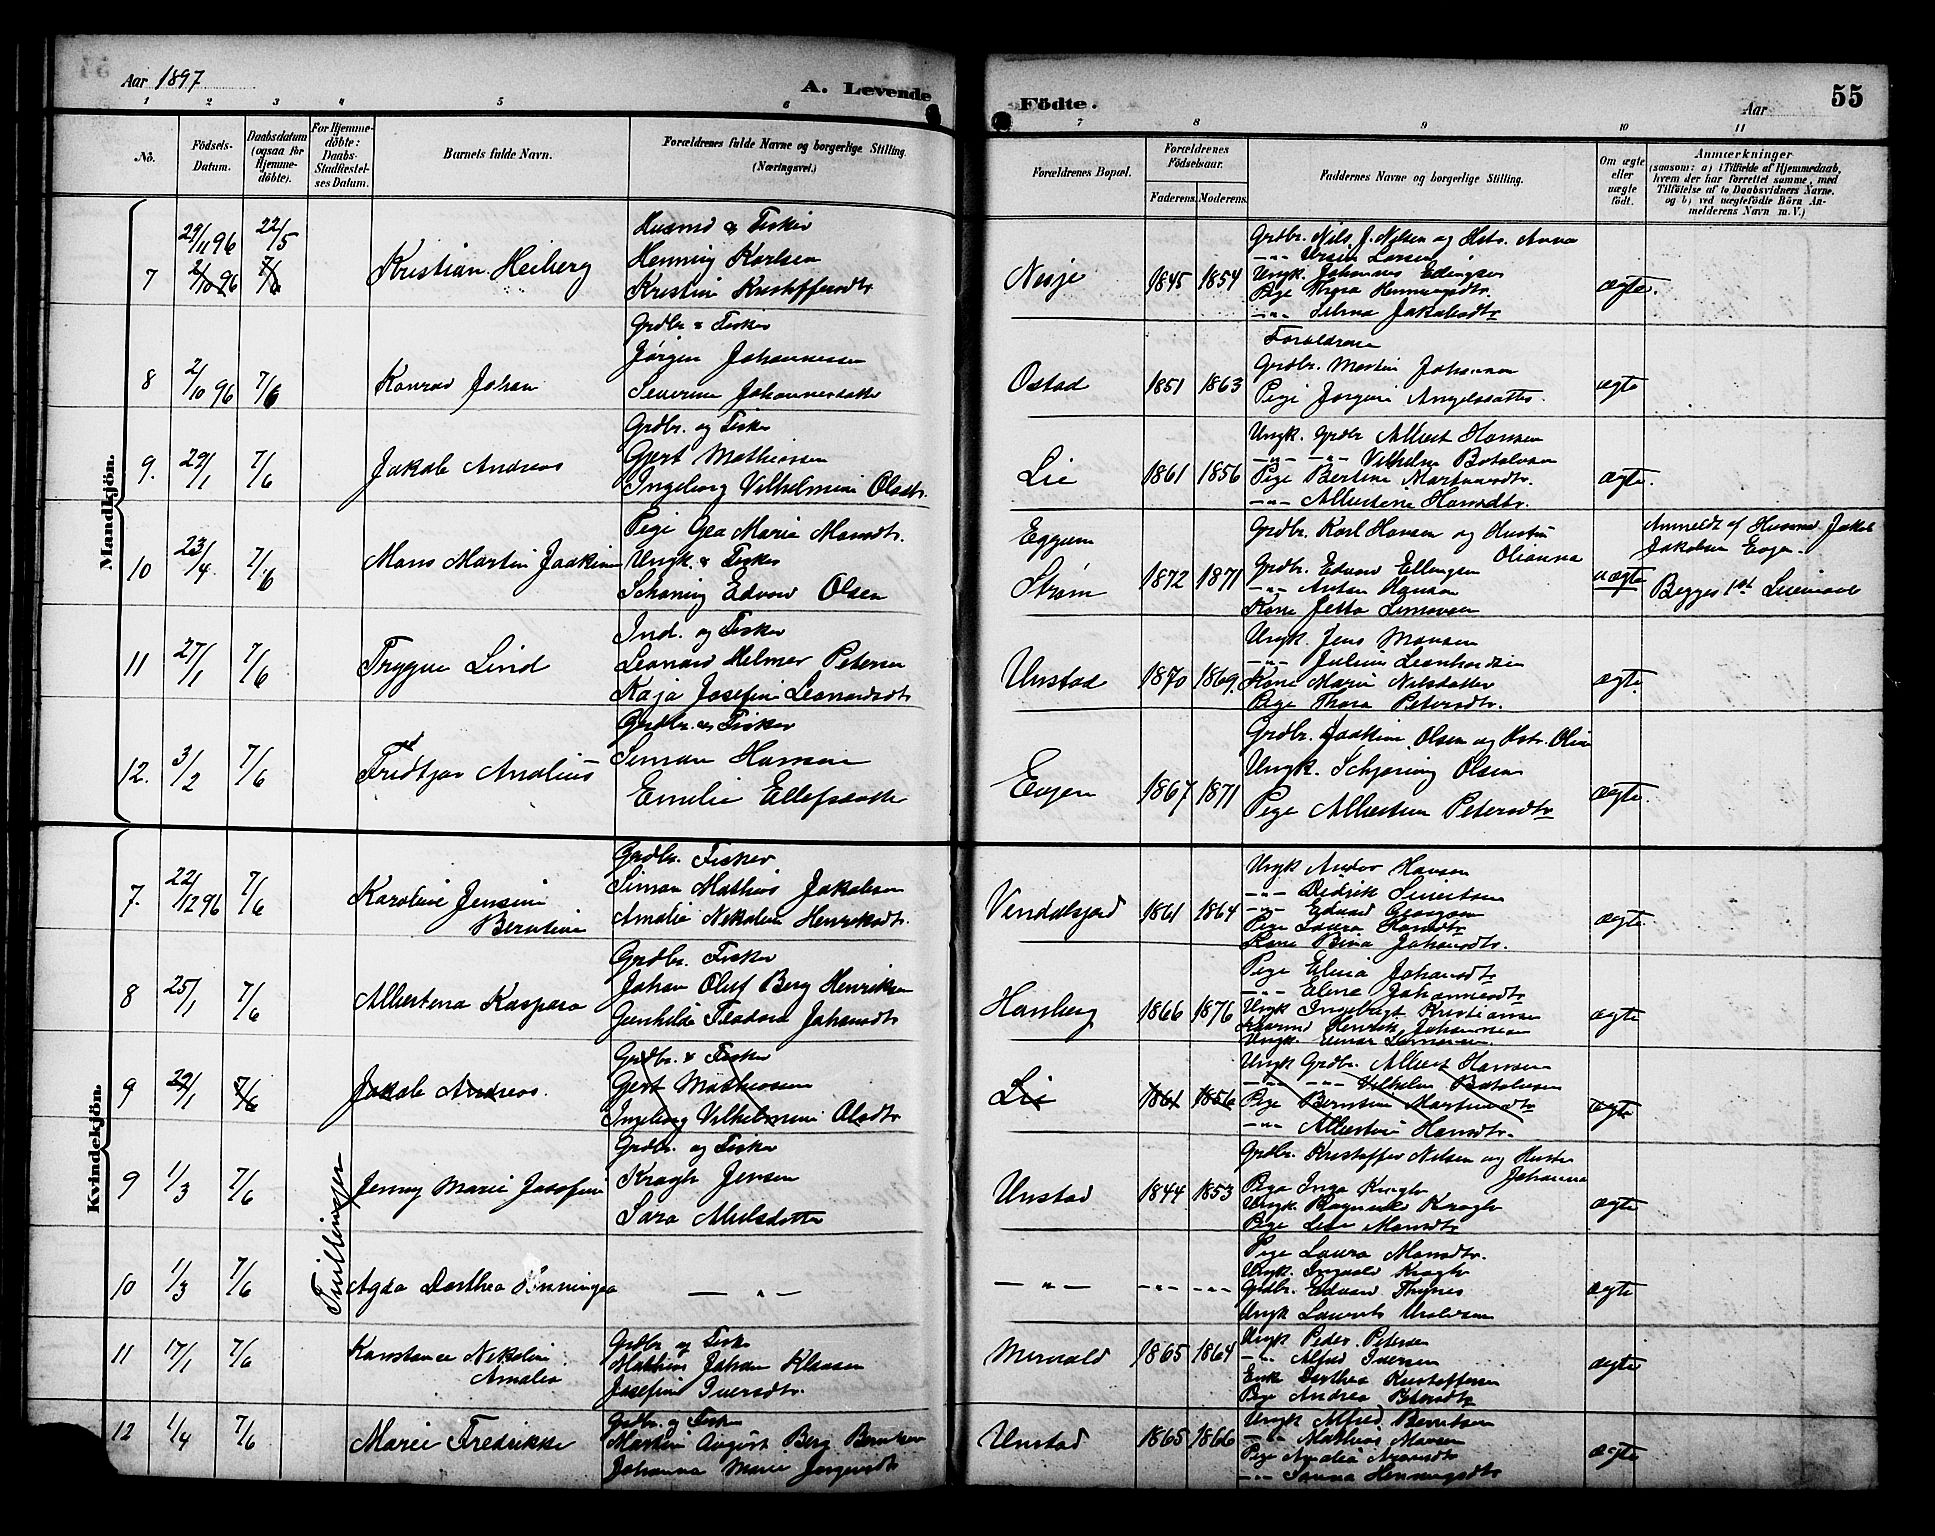 Aar 1897
A. Levende
Födte.
Aar
55
1 2 3 4 5 6 7 8 9 10 11
No.
Födsels-Datum.
Daabsdatum (ogsaa for Hjemmedöbte).
For Hjemmedöbte: Daabs-Stadfæstelses Datum.
Barnets fulde Navn.
Forældrenes fulde Navne og borgerlige Stilling. (Næringsvei.)
Forældrenes Bopæl.
Forældrenes Födselsaar.
Faderens. Moderens.
Faddernes Navne og borgerlige Stilling.
Om ægte eller uægte födt.
Anmærkninger
(saasom: a) i Tilfælde af Hjemmedaab, hvem der har forrettet samme, med Tilføielse af to Daabsvidners Navne, og b) ved uægtefödte Börn Anmelderens Navn m. V.)
Mandkjön.
7 29/11 96 22/5
2/10 96 7/6
Kristian Heiberg
Husmd & Fisker
Henning Karlsen
Kristine Kristoffersdtr
Nesje 1845 1854
Grdbr. Nils J. Nilsen og Hstr. Anna
-"- Larsen
Ungk. Johannes Edingsen
Pige Thora Henningsdtr.
-"- Selma Jakobsdtr
ægte.
8 2/10 96 7/6
Konrad Johan
Grdbr & Fisker
Jørgen Johannessen
Severine Johannesdatter
Ostad 1851 1863
Forældrene
Grdbr. Martin Johansen
Pige Jørgine
ægte
9. 29/1 7/6
Jakob Andreas
Grdbr. og Fisker
Gjert Mathiesen
Ingeborg Vilhelmine Olsdtr.
Lie 1861 1856
Ungk. Grdbr Albert Hansen
-"- -"- Vilhelm
Pige Bertine Martinusdtr.
-"- Albertine Hansdtr.
ægte.
10 23/4 7/6
Mons Martin Joakim
Pige Gea Marie Monsdtr.
Ungk. & Fisker
Schøning Edvard Olsen
Eggum
Strøm 1872 1871
Grdbr. Karl Hansen og Hustru
Olianna
Grdbr. Edvard Ellingsen
-"- Anton Hansen
Kone Jetta Simonsen
uægte
Anmeldt af Husmd Jakob
Jakobsen Evjen.
Begges 1ste Leiermaal
11 27/1 7/6
Trygve Lind
Ind. og Fisker
Leonard Helmer Petersen
Kaja Josefine Leonardsdtr
Unstad 1870 1869.
Ungk. Jens Monsen
-"- Julius
Kone Marie Nilsdatter
Pige Thora Petersdtr.
ægte.
12. 3/2 7/6
Fridtjov Andlius
Grdbr. & Fisker
Simon Hansen
Emelie Ellefsdatter
Evjen 1867 1871
Grdbr. Joakim Olsen og Hstr. Oline
Ungk. Schjøning Olsen
Pige Albertine Petersdtr
ægte.
Kvindekjön.
7. 22/12 96 7/6
Karoline Jensine
Berntine
Grdbr. Fisker
Simon Mathias Jakobsen
Amalie Nikoline Henriksdtr.
Vendalsjord 1861 1864
Ungk Hansen
-"- Didrik Sivertsen
-"- Edvard
Pige Laura Hansdtr
Kone Bina Johansdtr.
ægte.
8 25/1 7/6
Albertena Kaspara
Grdbr. Fisker
Johan Oluf Berg Henriksen
Gunhilda Teodora Johansdtr
Hanberg 1866 1876
Pige Elena Johansdtr
-"- Eline Johannesdtr
Ungk Ingebrigt Kristiansen
Husmd Henrik Johannesen
Ungk. Einar Simonsen.
ægte
9 29/1 7/6
Jakob Andreas.
Grdbr. & Fisker
Gert Mathiessen
Ingeborg Vilhelmine Olsdtr
Lie 1861 1856
Ungk Grdbr. Albert Hansen
-"- -"- Vilhelm
Pige Berntine Martinusdtr
-"- Albertine Hansdtr.
ægte
Tvillinger
9 1/3 7/6
Jenny Marie Josefine
Grdbr. og Fisker
Kragh Jensen
Sara Nilsdatter
Unstad 1844 1853
Grdbr. Kristoffer Nilsen og Hustr
Johanna
Pige Inga Kragh
Ungk. Ragnvald Kragh
Pige Lise Monsdtr
ægte
10 1/3 7/6
Agda Dorthea Henningea
— " —
— " — -"- -"-
Pige Laura Monsdtr.
Ungk. Ingvald Kragh
Grdbr. Edvard
Ungk Laurits
ægte
11 17/1 7/6
Konstance Nikoline
Amalia
Grdbr og Fisker
Mathias Johan Klausen
Josefine Iversdtr.
Mervold 1865 1864
Ungk Peder Petersen
-"- Alfred Iversen
Enke Dorthea Kristoffersen
Pige Andrea Petersdtr
ægte
12 1/4 7/6
Marie Fredrikke
Grdbr. og Fisker
Martin August Berg Berntsen
Johanna Marie Jørgensdtr
Unstad 1865 1866
Ungk. Alfred Berntsen
-"- Mathias Hansen
Pige Amalia
-"- Sanna Henningsdtr
ægte